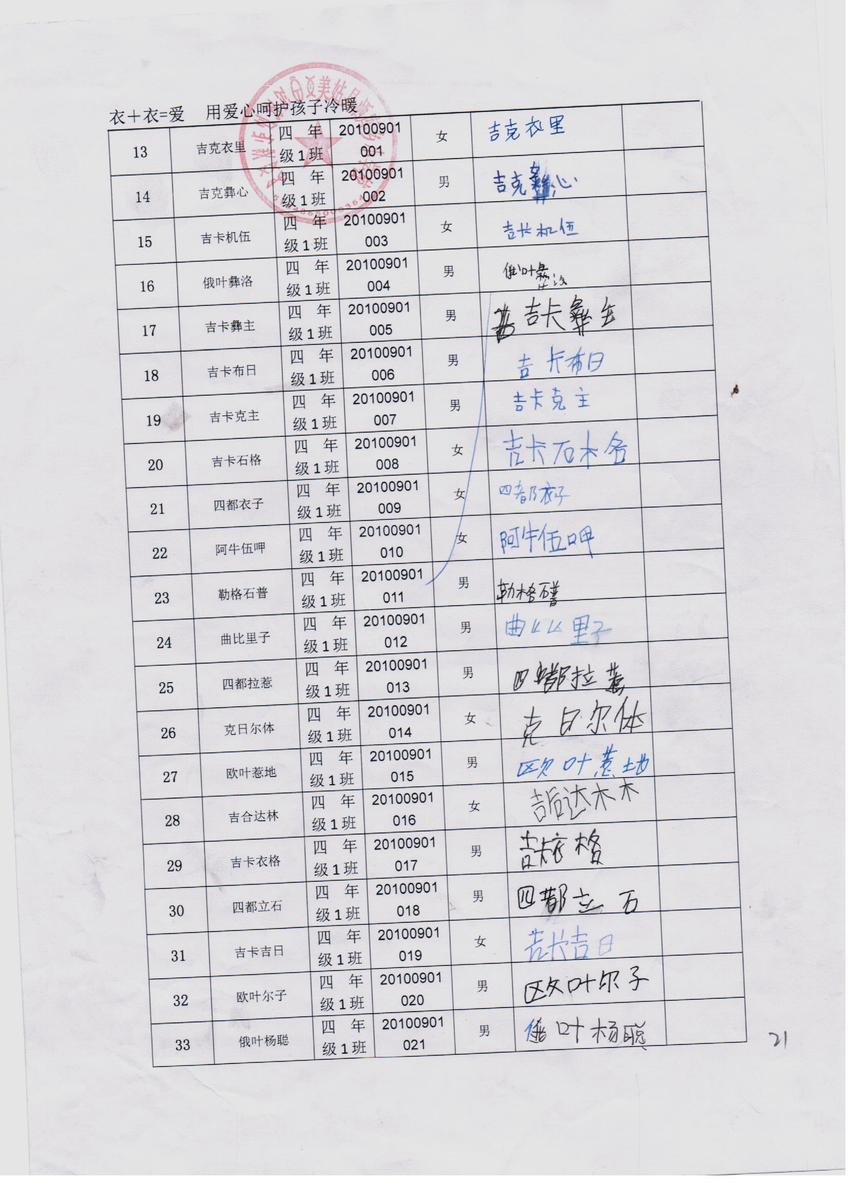 衣+衣=爱 用爱心呵护孩子冷暖
13 吉克衣里 四 年级1班 20100901001 女 吉克衣里
14 吉克彝心 四 年级1班 20100901002 男 吉克彝心
15 吉卡机伍 四 年级1班 20100901003 女 吉卡机伍
16 俄叶彝洛 四 年级1班 20100901004 男 俄叶彝
17 吉卡彝主 四 年级1班 20100901005 男 吉卡彝主
18 吉卡布日 四 年级1班 20100901006 男 吉卡布日
19 吉卡克主 四 年级1班 20100901007 男 吉卡克主
20 吉卡石格 四 年级1班 20100901008 女 吉卡石木各
21 四都衣子 四 年级1班 20100901009 女 四都衣子
22 阿牛伍呷 四 年级1班 20100901010 女 阿牛伍呷
23 勒格石普 四 年级1班 20100901011 男 勒格石普
24 曲比里子 四 年级1班 20100901012 男 曲比里子
25 四都拉惹 四 年级1班 20100901013 男 四都拉惹
26 克日尔体 四 年级1班 20100901014 女 克日尔体
27 欧叶惹地 四 年级1班 20100901015 男 欧叶惹地
28 吉合达林 四 年级1班 20100901016 女 吉后达木木
29 吉卡衣格 四 年级1班 20100901017 男 吉卡衣格
30 四都立石 四 年级1班 20100901018 男 四都立石
31 吉卡吉日 四 年级1班 20100901019 女 吉卡吉日
32 欧叶尔子 四 年级1班 20100901020 男 欧叶尔子
33 俄叶杨聪 四 年级1班 20100901021 男 俄叶杨聪
21